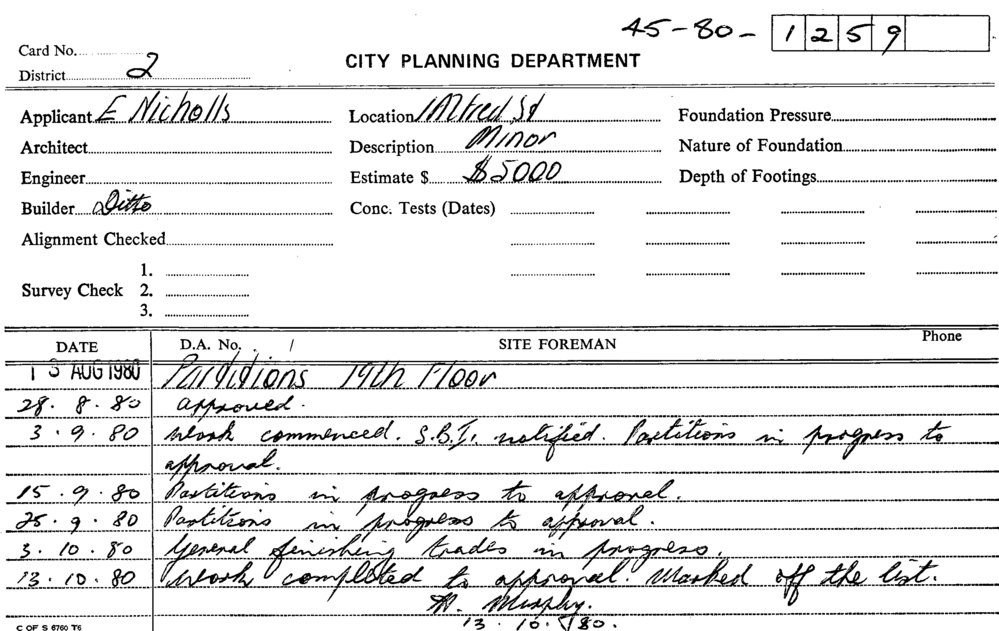 45-80- 1259
Card No.
District 2
CITY PLANNING DEPARTMENT
Applicant E Nicholls Location 1 Alfred St Foundation Pressure
Architect Description Minor Nature of Foundation
Engineer Estimate $ $5000 Depth of Footings
Builder Ditto Conc. Tests (Dates)
Alignment Checked
1.
Survey Check 2.
3.
DATE D.A. No. / SITE FOREMAN Phone
13 AUG 1980 Partitions 19th Floor
28.8.80 approved.
3.9.80 Work commenced. S.B.I. notified. Partitions in progress to
approval.
15.9.80 Partitions in progress to approval.
25.9.80 Partitions in progress to approval.
3.10.80 General finishing trades in progress.
13.10.80 Work completed to approval. Marked off the list.
Murphy.
13.10.80.
C OF S 6760 T6